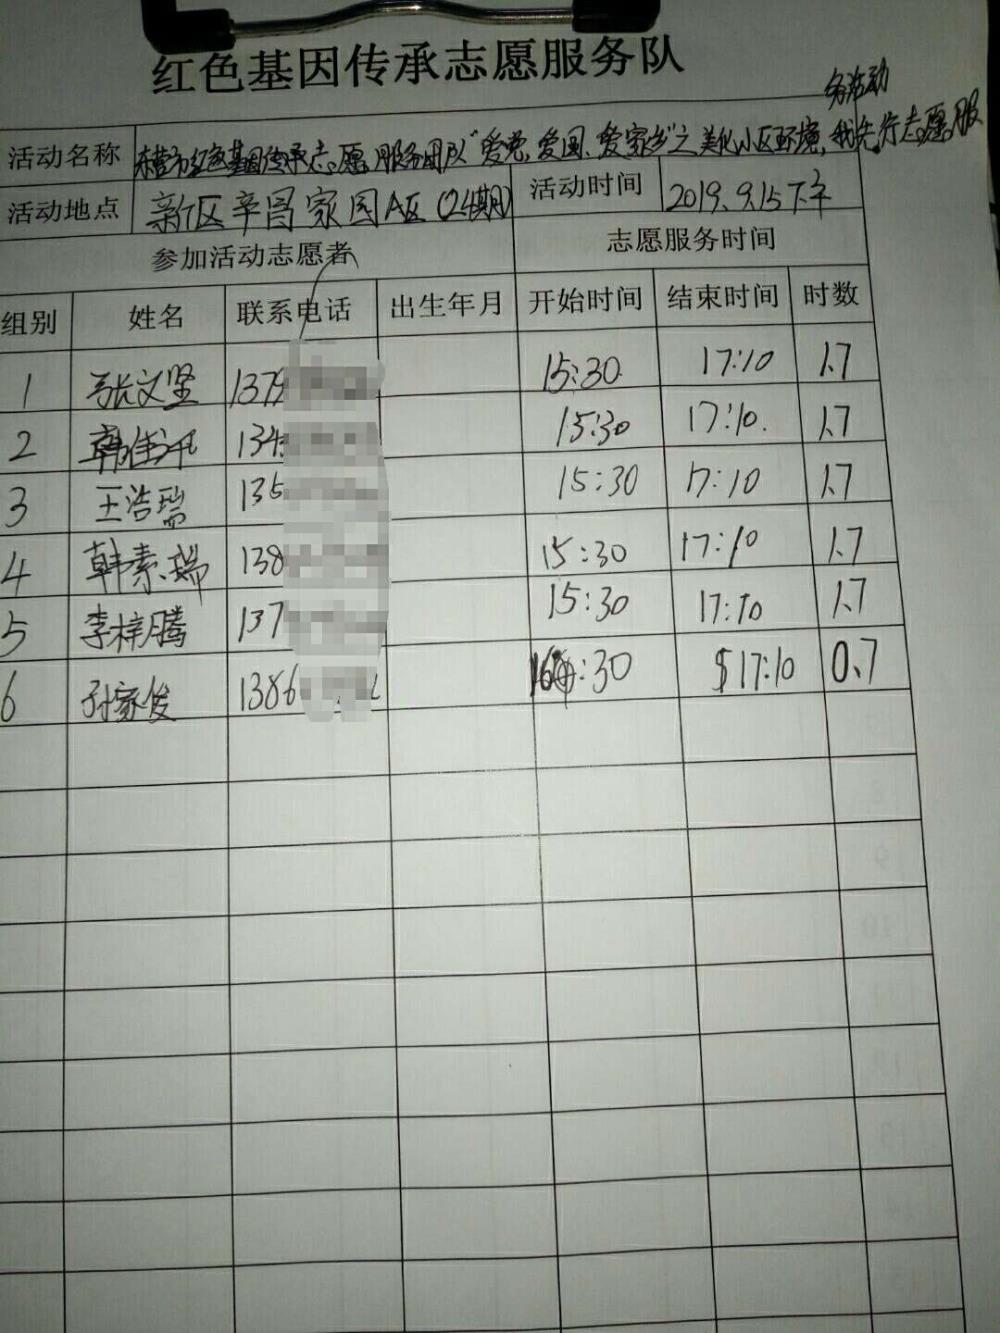 红色基因传承志愿服务队
务活动
活动名称 东营市红色基因传承志愿服务团队"爱党、爱国、爱家乡"之美化小区环境,我先行志愿服
活动地点 新区辛昌家园A区(24期) 活动时间 2019.9.15下午
参加活动志愿者 志愿服务时间
组别 姓名 联系电话 出生年月 开始时间 结束时间 时数
1 张文坚 1379 15:30 17:10 1.7
2 134 15:30 17:10. 1.7
3 王浩瑞 135 15:30 17:10 1.7
4 韩素瑞 138 15:30 17:10 1.7
5 李梓腾 137 15:30 17:10 1.7
6 孙家俊 1386 16:30 17:10 0.7